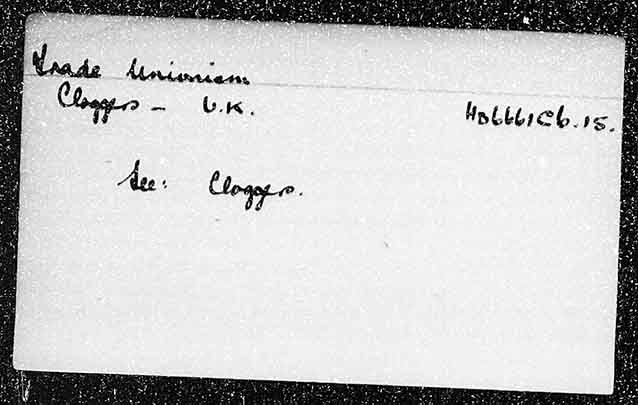 Trade Unionism
Cloggers - U.K. HD6661C6.15.
See: Cloggers.